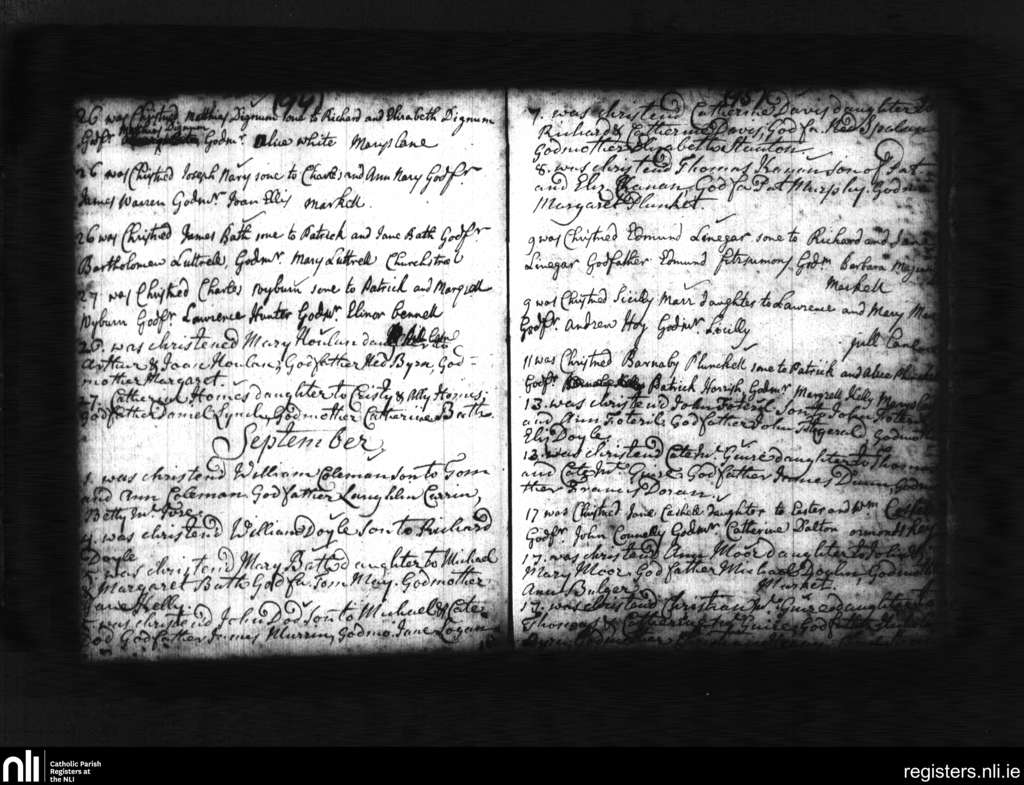 (94)
26 was Christned Mathias Dignum sone to Richard and Elizabeth Dignum
Godfr Mathias Dignum Godmr Alice white Maryslane
26 was Christned Joseph Nary sone to Charles and Ann Nary Godfr
James Warren Godmr Joan Ellis markett.
26 was Christned James Bath sone to Patrick and Jane Bath Godfr
Bartholomew Luttrell, Godmr Mary Luttrell Churchstreet
27 was Christned Charles wyburn sone to Patrick and Margrett
Wyburn Godfr Lawrence Hunter Godmr Elinor Fennell
was christened Mary Houlun
Arthur & Joan Houlun, Godfather Ned Byrn, God-
mother Margaret.
27. Catherin Homes daughter to Cristy & Ally Homes;
Godfather Daniel Lynch, Godmother Catherine
September
1. was christend William Coleman son to Tom
and Ann Coleman Godfather Laughlin
Betty
4. was christend William Doyle Son to Richard
Doyle
5. was christend Mary Bath daughter to Michael
& Margaret Bath Godfa Tom May. Godmother
Jane Kelly
was christend John Dod Son to Michael & Cate
Dod Godfather James Murrin, Godmo. Jane Logan
7. was christend Catherine Davis daughter to
Richard & Catherine Davis, Godfa Ned
Godmother Elizabeth Stanton
8. was christend Thomas son of Pat
and Eliz Godfa Pat Murphy. Godmo
Margaret Plunket.
9 was Christned Edmund Linegar sone to Richard and Jane
Linegar Godfather Edmund fitzsimons Godmr Barbara
Markett
9 was Christned Sicilly Marr daughter to Lawrence and Mary Marr
Godfr Andrew Hoy Godmr
pill lane
11 was Christned Barnaby Plunckett sone to Patrick and Alice Plunckett
Godfr Patrick Godmr Margrett Kelly
13. was christend John Foteril Son to John
and Ann Foteril Godfather John Fitzgerald, Godmoth
Elis Doyle
13. was christend Cate Mc Guire daughter to Thomas
and Cate Mc Guire Godfather James Dunn, Godmo
ther Francis Doran.
17 was Christned Jane Caskell daughter to Lester and Wm
Godfr John Connolly Godmr Catherine Dalton ormond Key
17. was christend Ann Moor daughter to John &
Mary Moor Godfather Michael Godmoth
Ann Bulger Market
17. was christend Christian Mc Guire daughter to
Thomas & Catherine Mc Guire, Godfather
nli
Catholic Parish
Registers at
the NLI
registers.nli.ie